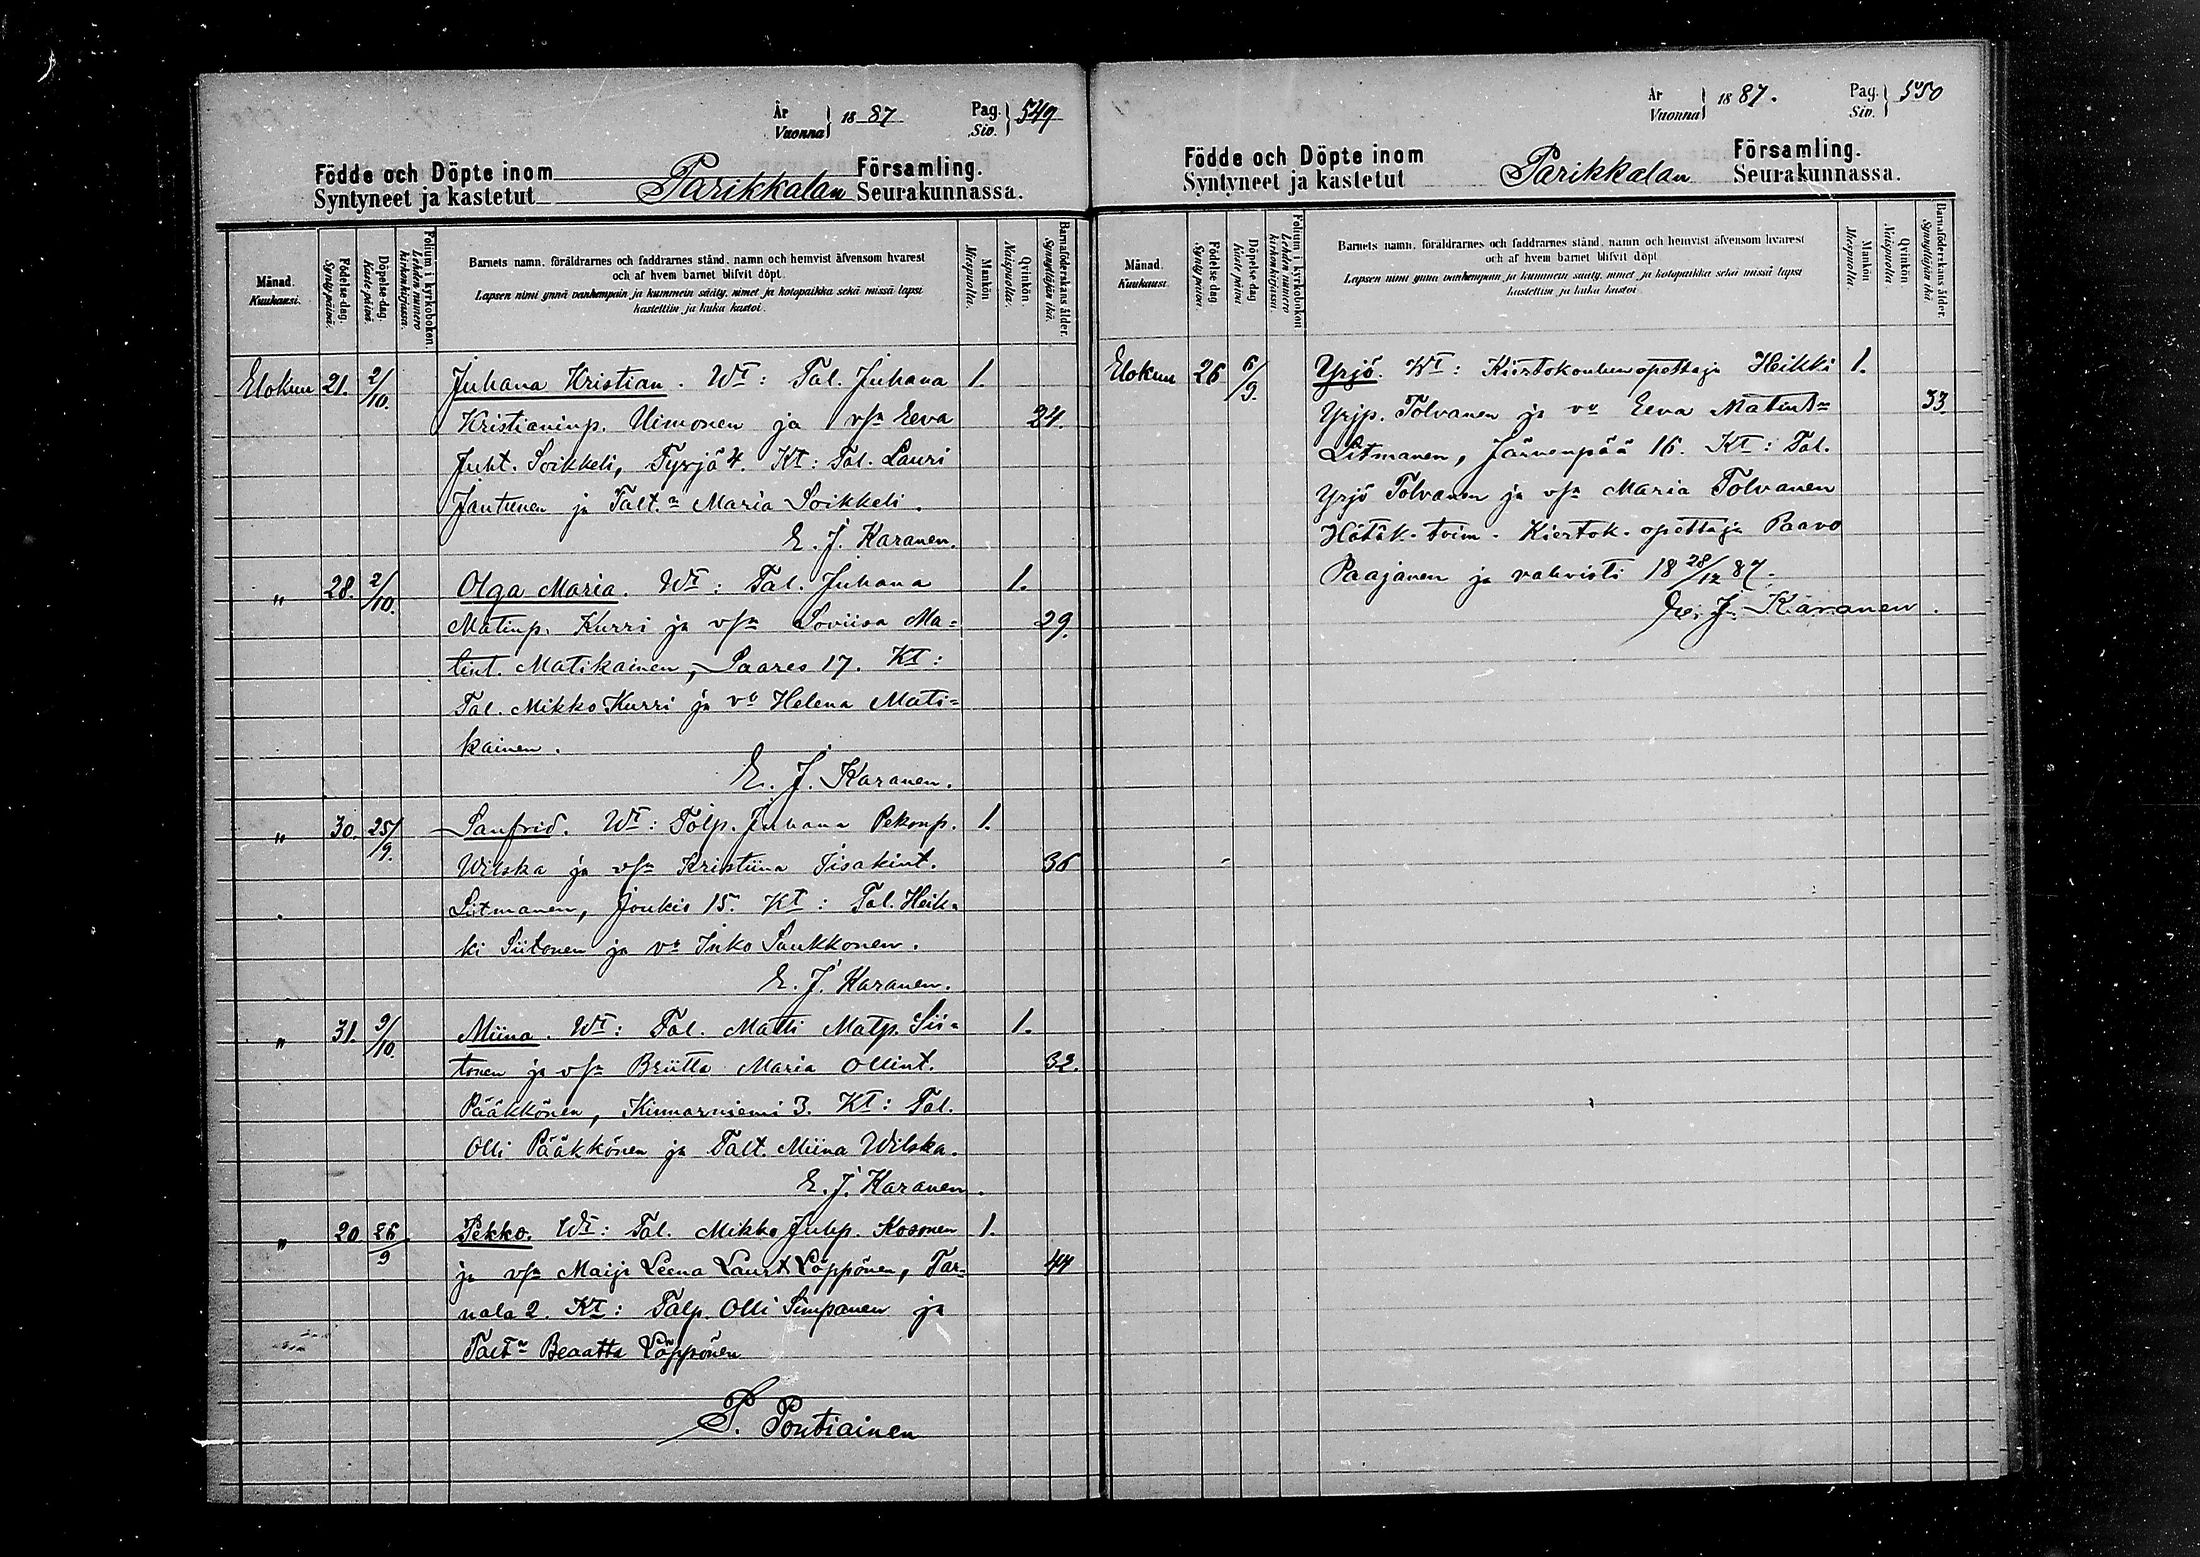 År
Vuonna } 1887
Pag.
Siv. } 549
Födde och Döpte inom Församling.
Syntyneet ja kastetut Parikkalan Seurakunnassa.
Månad.
Kuukausi.
Födelse-dag.
Syntypäivä.
Döpelse-dag.
Kastepäivä.
Folium i kyrkoboken.
Lehden numero
kirkonkirjassa.
Barnets namn, föräldrarnes och faddrarnes stånd, namn och hemvist äfvensom hvarest
och af hvem barnet blifvit döpt.
Lapsen nimi ynnä vanhempain ja kummein sääty, nimet ja kotopaikka sekä missä lapsi
kastettiin ja kuka kastoi.
Mankön
Miespuolta.
Qvinkön.
Naispuolta.
Barnaföderskans ålder.
Synnyttäjän ikä.
Elokuu 21. 2/10. Juhana Kristian. Wt: Tal. Juhana 1.
Kristianinp. Uimonen ja vsa Eeva 24.
Juht. Soikkeli, Tyrjä 4. Kt: Tal. Lauri
Jantunen ja Talt.a Maria Soikkeli.
E. J. Karanen.
" 28. 2/10. Olga Maria. Wt: Tal. Juhana 1.
Matinp. Kurri ja vsa Loviisa Ma= 29.
tint. Matikainen, Saares 17. Kt:
Tal. Mikko Kurri ja vo Helena Mati=
kainen.
E. J. Karanen.
" 30. 25/9. Sanfrid. Wt: Tolp. Juhana Pekonp. 1.
Wilska ja vsa Kristiina Iisakint. 36
Siitmanen, Joukio 15. Kt: Tal. Heik=
ki Siitonen ja va Inko Saukkonen.
E. J. Karanen.
" 31. 9/10. Miina. Wt: Tal. Matti Matp. Sii= 1.
tonen ja vsa Briitta Maria Ollint. 32.
Pääkkönen, Kinnarniemi 3. Kt: Tal.
Olli Pääkkönen ja Talt. Miina Wilska.
E. J. Karanen.
" 20 26/9 Pekko. Wt: Tal. Mikko Juhp. Kosonen 1.
ja vsa Maija Leena Laurt Löppönen, Tar= 44
nala 2. Kt: Talp. Olli Simpanen ja
Talta Beaatta Löppönen
P. Pontiainen
År
Vuonna } 1887.
Pag.
Siv. } 550
Födde och Döpte inom Församling.
Syntyneet ja kastetut Parikkalan Seurakunnassa.
Månad.
Kuukausi
Födelse-dag
Syntypäivä
Döpelse-dag
Kastepäivä
Folium i kyrkoboken
Lehden numero
kirkonkirjassa.
Barnets namn, föräldrarnes och faddrarnes stånd, namn och hemvist äfvensom hvarest
och af hvem barnet blifvit döpt
Lapsen nimi ynnä vanhempain ja kummein sääty, nimet ja kotopaikka sekä missä lapsi
kastettiin ja kuka kastoi
Mankön
Miespuolta
Qvinkön
Naispuolta
Barnaföderskans ålder.
Synnyttäjän ikä.
Elokuu 26 6/9. Yrjö. Wt: Kiertokoulunopettaja Heikki 1.
Yrjp. Tolvanen ja vo Eeva Matint= 33
Litmanen, Järvenpää 16. Kt: Tal.
Yrjö Tolvanen ja vsa Maria Tolvanen
Hätäk. toim. Kiertok. opettaja Paavo
Paajanen ja vahvisti 18 28/12 87.
E. J. Karanen.